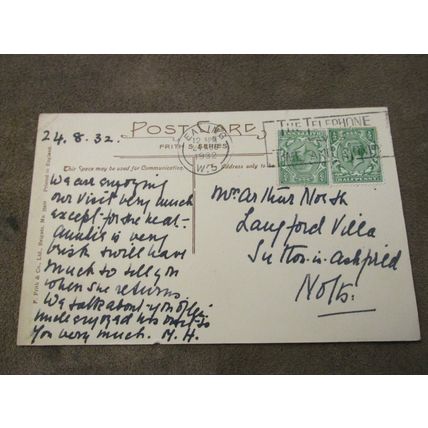 24.8.32.
POST CARD
FRITH'S SERIES
EALING
1932
W.5
THE TELEPHONE
This Space may be used for Communication.
Address only to be
F. Frith & Co., Ltd., Reigate. Printed in England.
We are enjoying
our visit very much
except for the heat -
Auntie is very
brisk & will have
much to tell you
when she returns.
We talk about you all.
Uncle enjoyed his visit to
you very much. M. H.
Mr Arthur North
Langford Villa
Sutton-in-Ashfield
Notts.